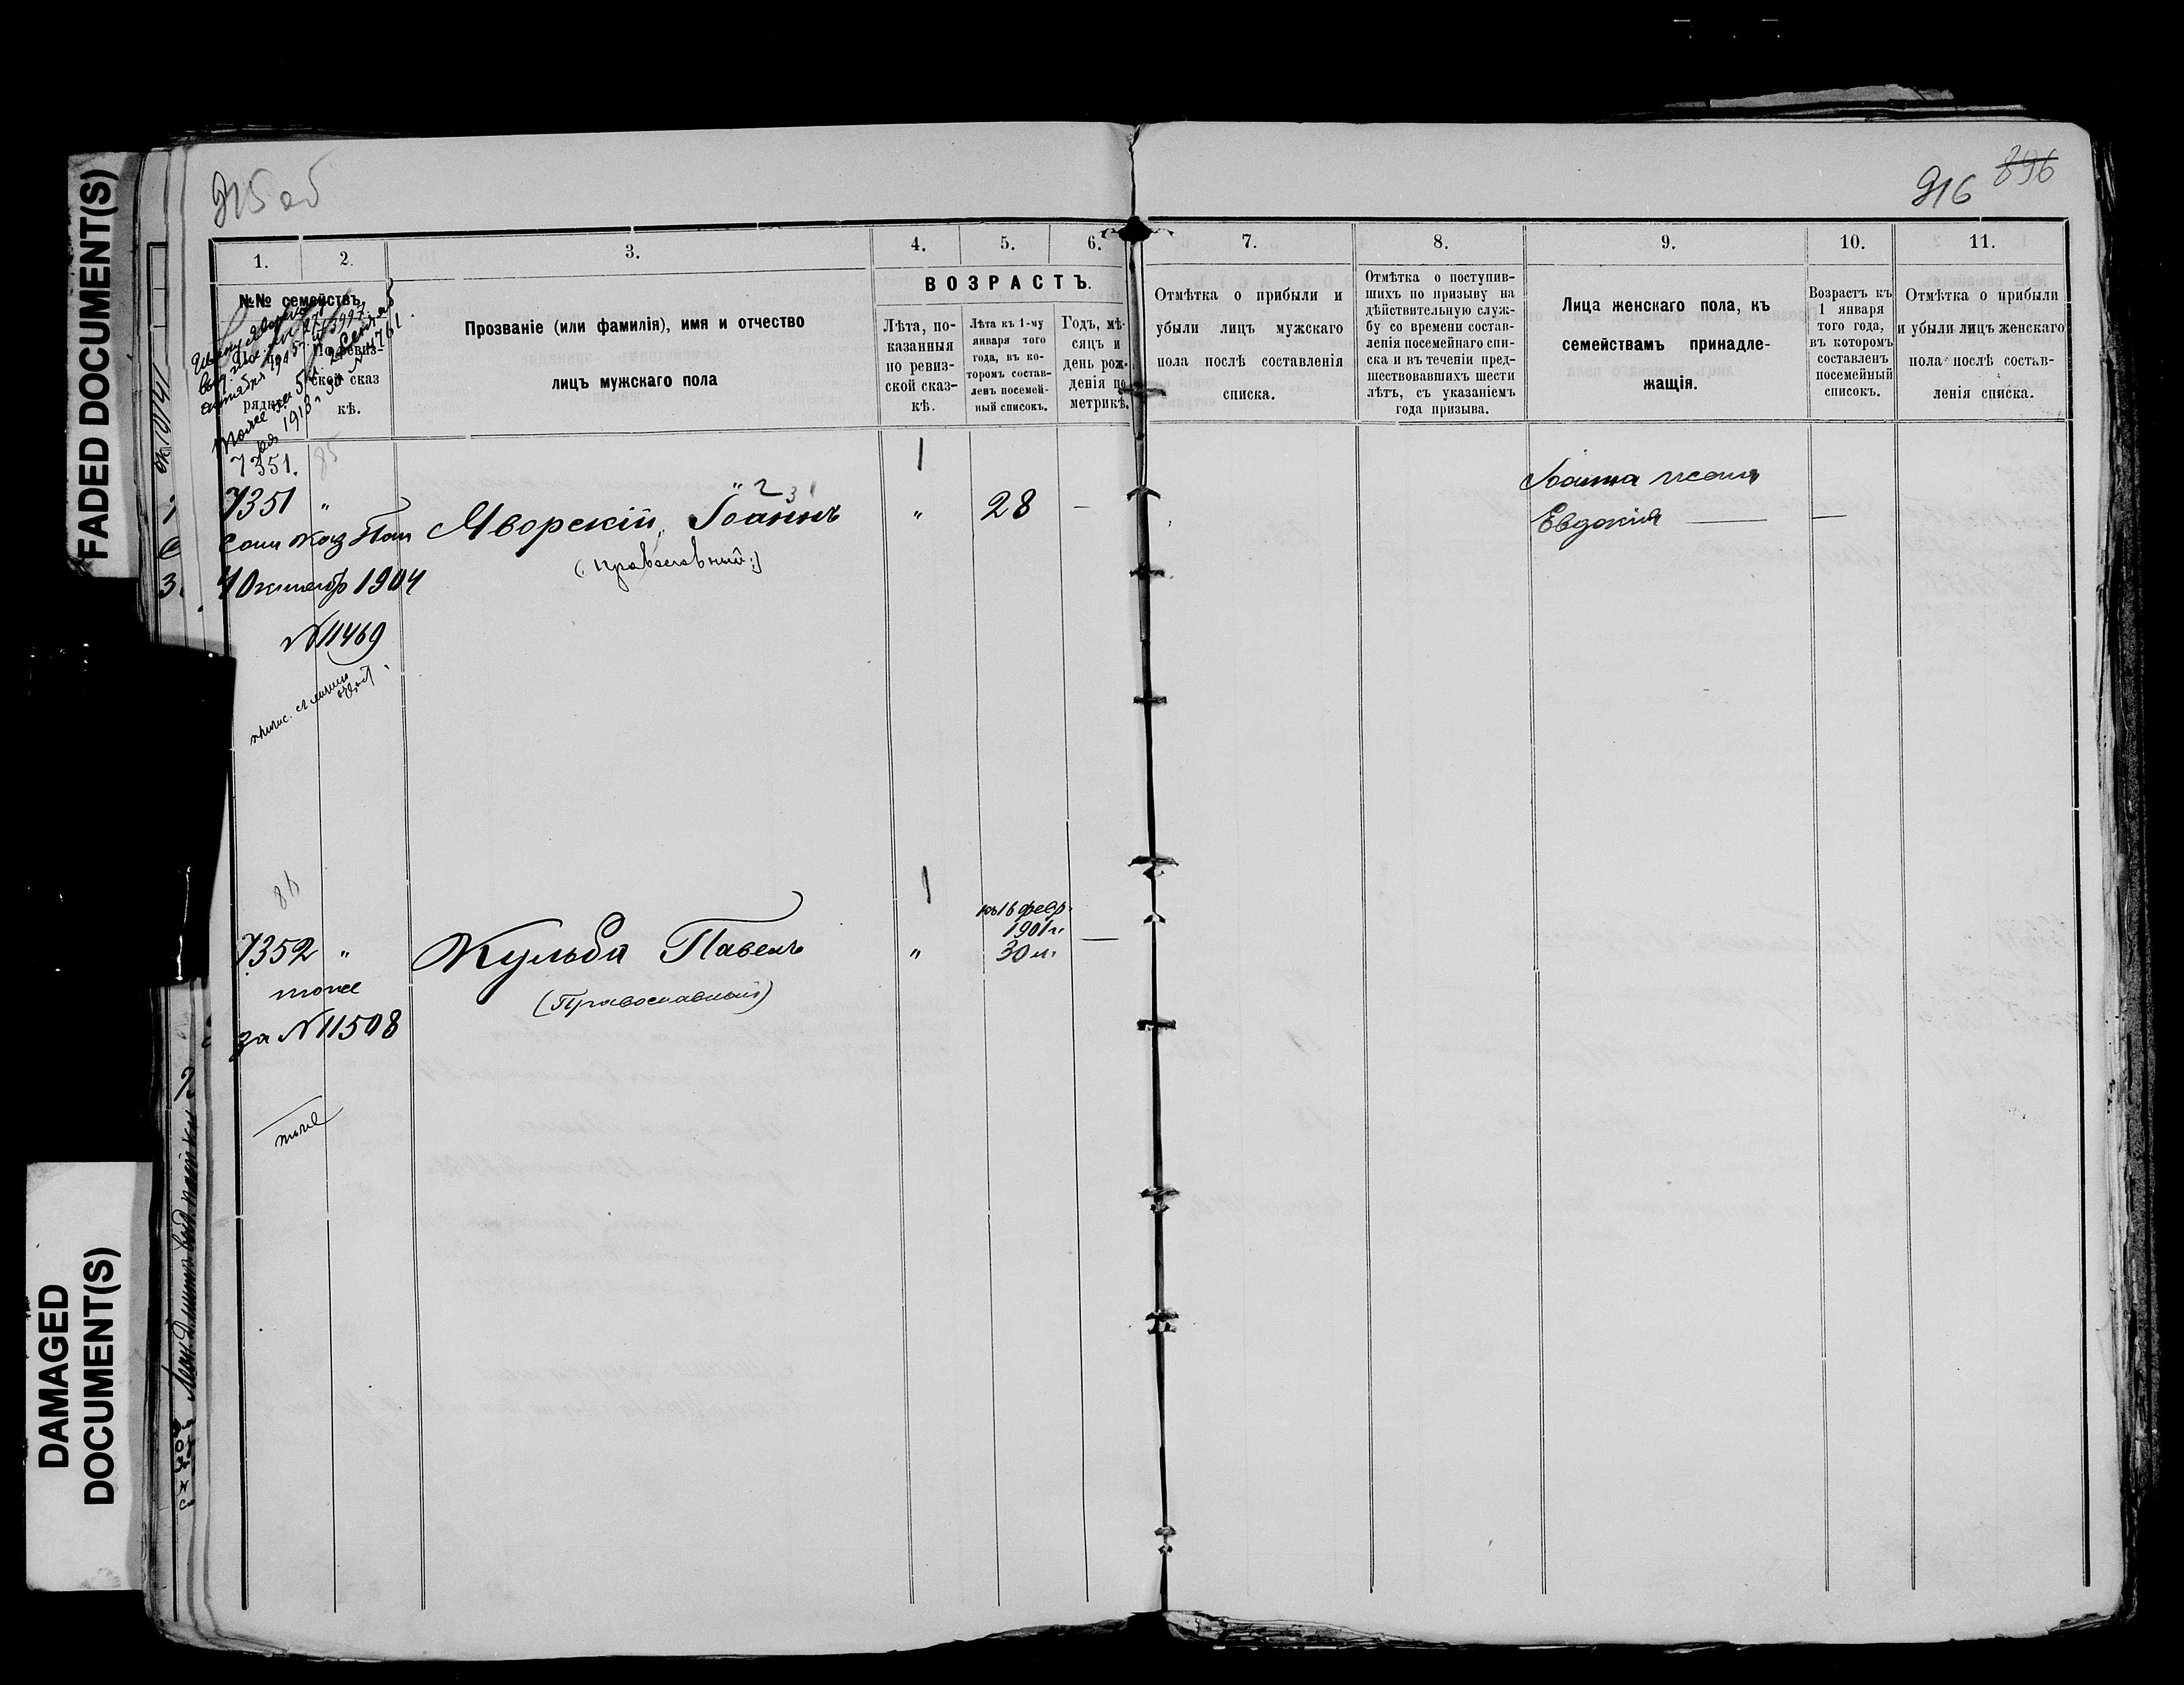 FADED DOCUMENT(S)
DAMAGED
DOCUMENT(S)
915 об
916
896
1.
2.
3.
4.
5.
6.
7.
8.
9.
10.
11.
№№ семействъ
По ревиз-
ской сказ
кѣ.
Прозваніе (или фамилія), имя и отчество
лицъ мужскаго пола
ВОЗРАСТЪ.
Лѣта, по-
казанныя
по ревиз-
ской сказ-
кѣ.
Лѣта къ 1-му
января того
года, въ ко-
торомъ состав-
ленъ посемей-
ный списокъ.
Годъ, мѣ-
сяцъ и
день рож-
денія по
метрикѣ.
Отмѣтка о прибыли и
убыли лицъ мужскаго
пола послѣ составленія
списка.
Отмѣтка о поступив-
шихъ по призыву на
дѣйствительную служ-
бу со времени состав-
ленія посемейнаго спи-
ска и въ теченіи пред-
шествовавшихъ шести
лѣтъ, съ указаніемъ
года призыва.
Лица женскаго пола, къ
семействамъ принадле-
жащія.
Возрастъ къ
1 января
того года,
въ которомъ
составленъ
посемейный
списокъ.
Отмѣтка о прибыли
и убыли лицъ женскаго
пола послѣ состав-
ленія списка.
7351.
85
1
7351 "
Яворскій, Іоаннъ
" 28 —
Іоанна жена
Евдокія — —
(православный)
4 Октябр 1904
N 11469
86
1
7352 "
Жульба Павелъ
"
къ 16 февр.
1901 г.
30 л.
—
тоже
(Православный)
за N 11508
тоже